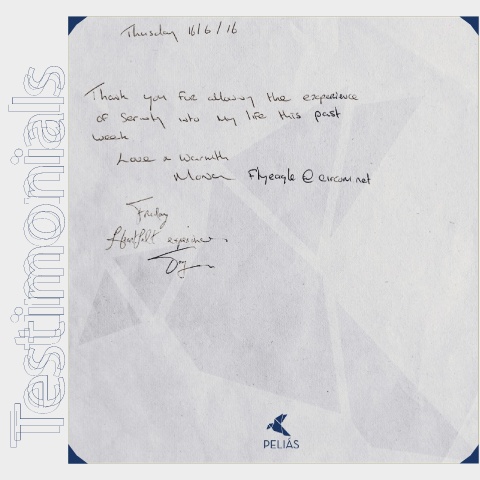 Testimonials
Thursday 16/6/16
Thank you for allowing the experience
of Serenity into my life this past
week
Love & Warmth
Flyeagle@eircom.net
Friday
Heartfelt experience.
PELIÁS